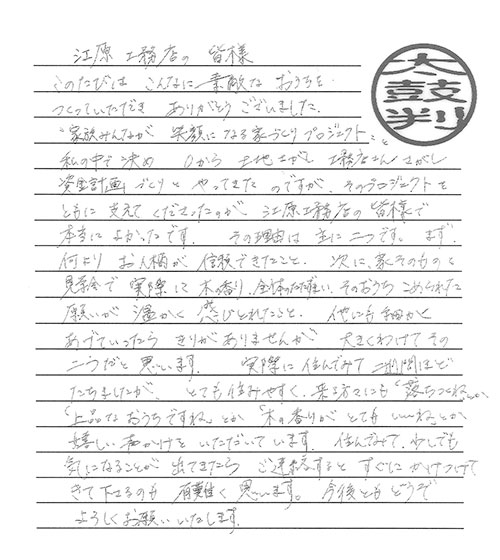 江原工務店の 皆様
このたびは こんなに 素敵な おうちを
つくっていただき ありがとう ございました。
"家族みんなが 笑顔に なる家づくり プロジェクト" と
私の中で 決め 0から 土地さがし 工務店さん さがし
資金計画 づくりと やってきた のですが、そのプロジェクトを
ともに 支えて くださったのが 江原工務店の 皆様で
本当に よかったです。 その理由は 主に 二つです。まず、
何より お人柄が 信頼できたこと。 次に、家そのものを
見学会で 実際に 木の香り、全体のたたずまい、そのおうち こめられた
願いが 温かく 感じとれたこと。 他にも 細かく
あげていったら きりが ありませんが 大きくわけて その
二つだと 思います。 実際に 住んでみて 二週間ほど
たちましたが、 とても 住みやすく、来る方々にも 「落ちつくね」、
「上品な おうちですね」とか 「木の香りが とても いいね」とか、
嬉しい 声かけを いただいて います。 住んでみて、少しでも
気になることが 出てきたら ご連絡すると すぐに かけつけて
きて 下さるのも 有難く 思います。 今後とも どうぞ
よろしくお願い いたします。
太鼓判